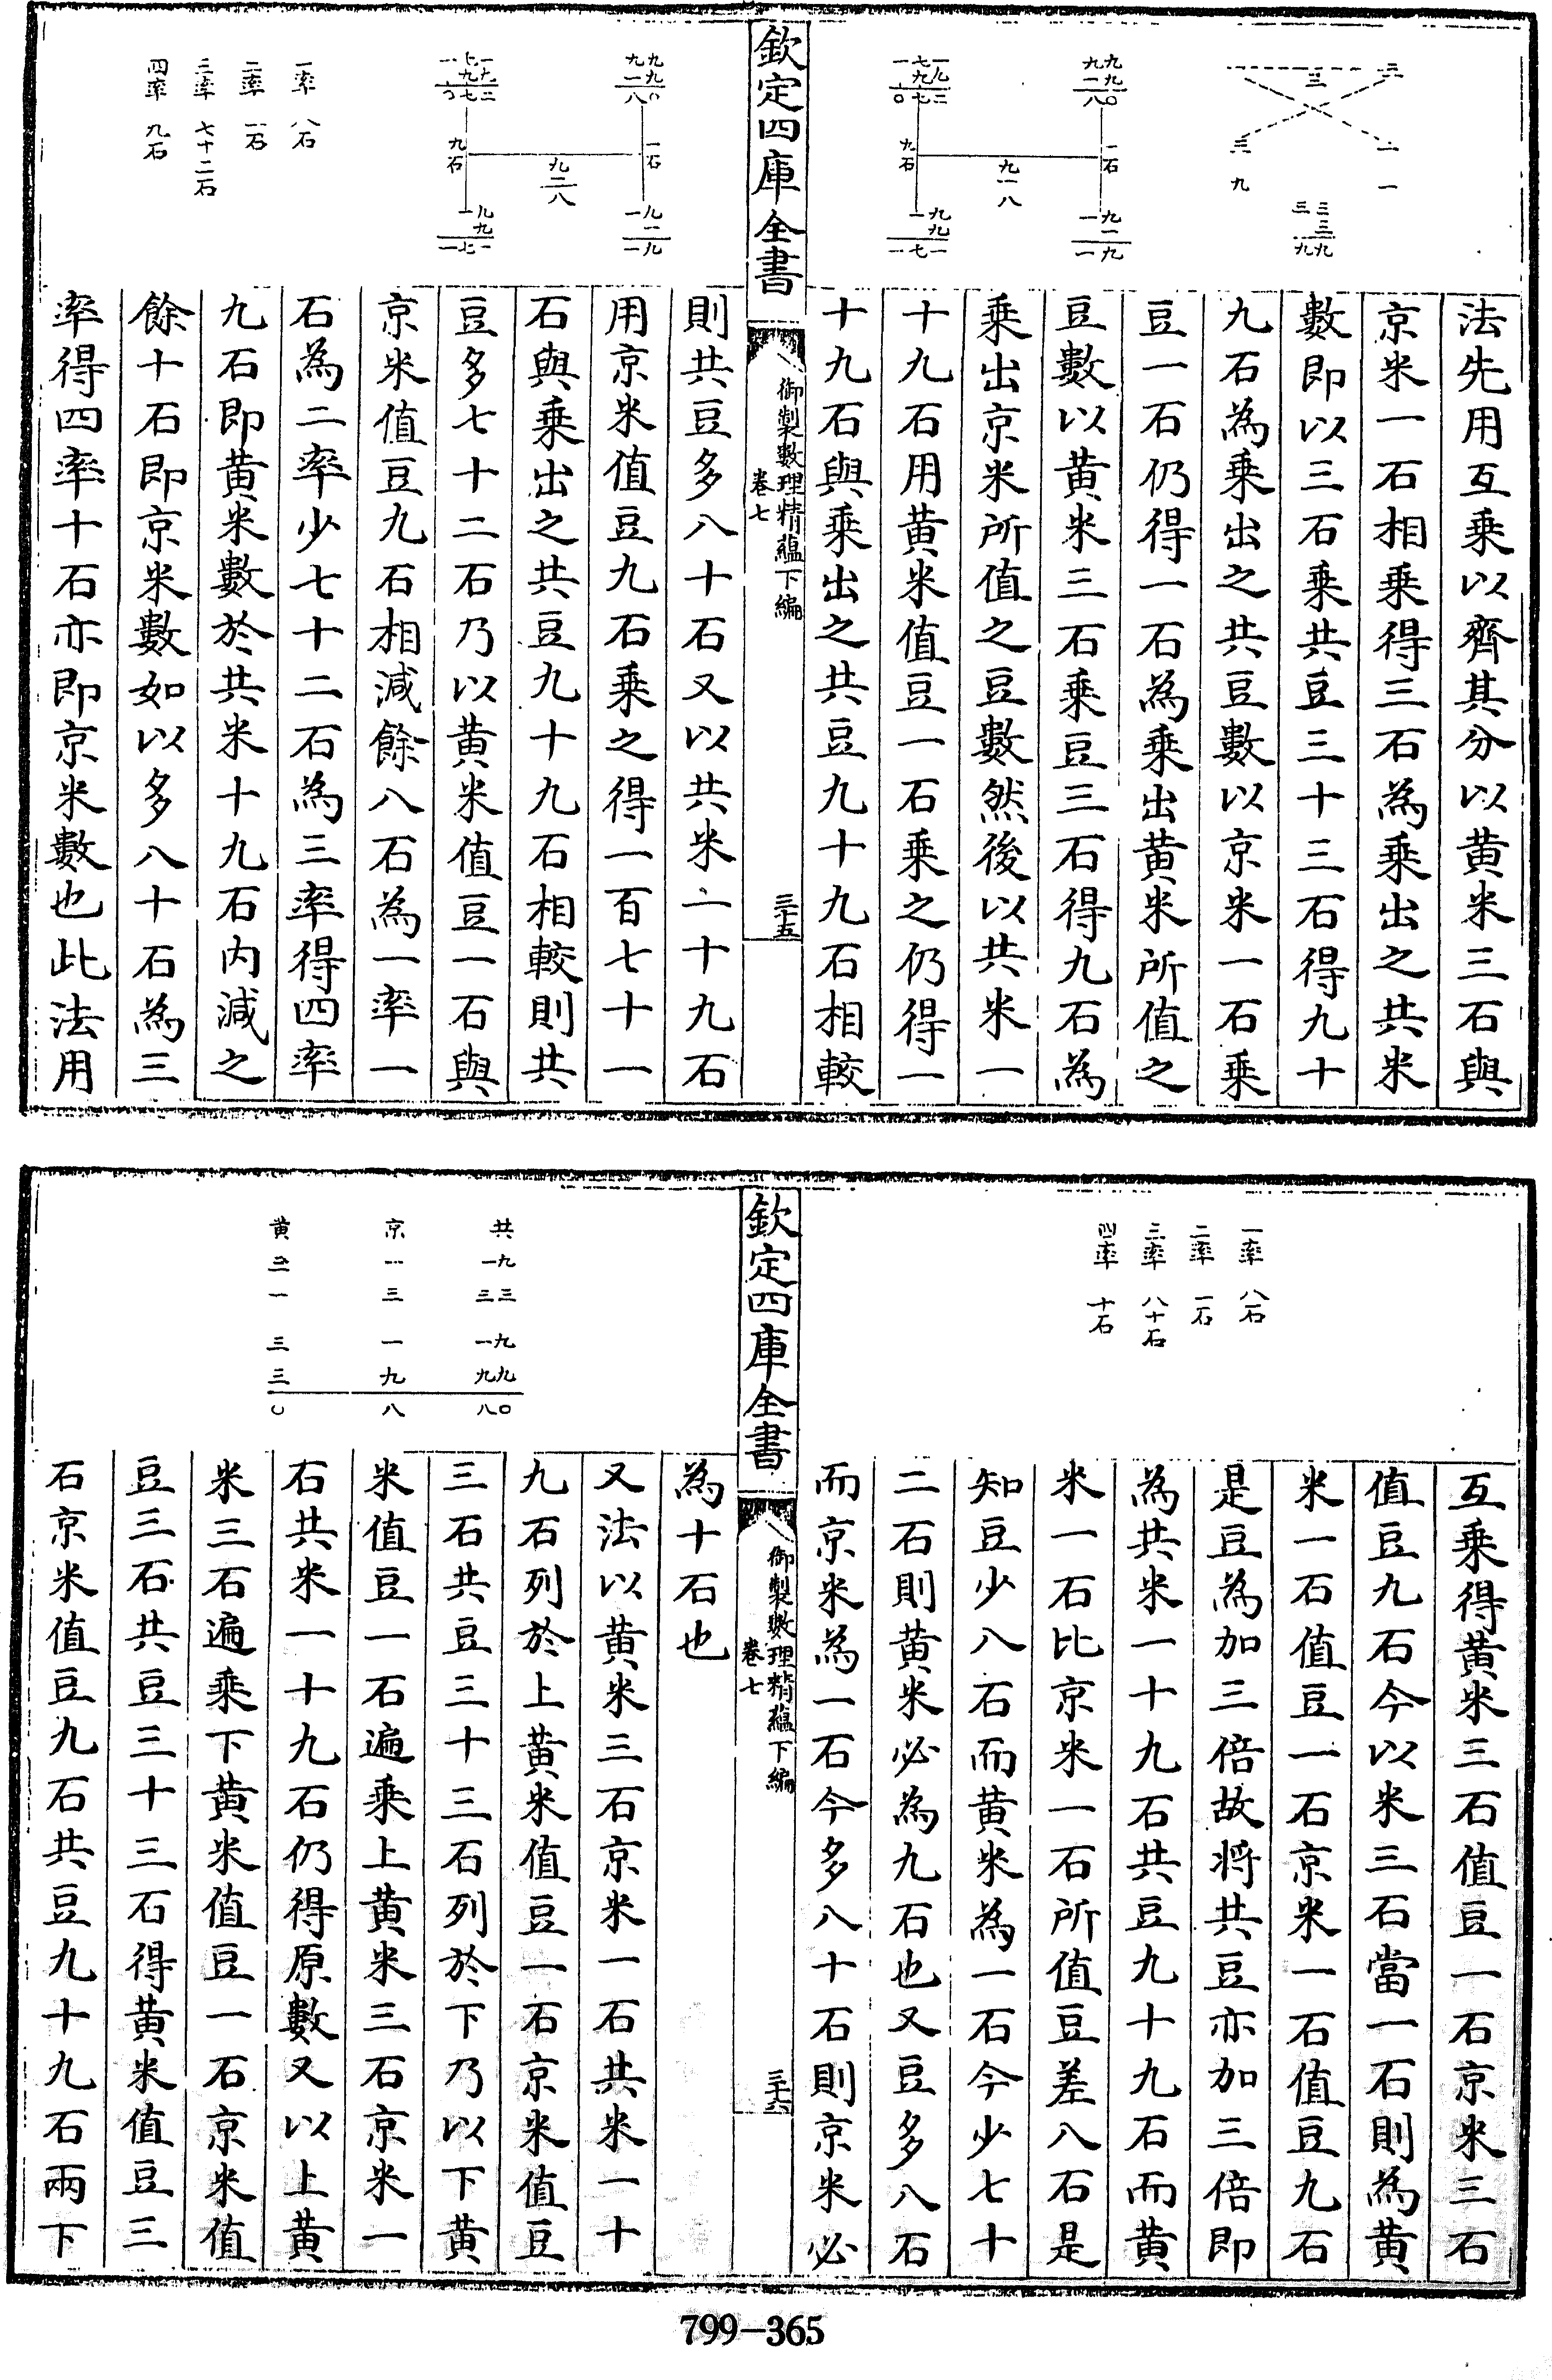 法先用互乗以齊其分以黄米三石與
京米一石相乗得三石為乗出之共米
數即以三石乗共豆三十三石得九十
九石為乗出之共豆數以京米一石乗
豆一石仍得一石為乗出黄米所值之
豆數以黄米三石乗豆三石得九石為
乗出京米所值之豆數然後以共米一
十九石用黄米值豆一石乗之仍得一
十九石與乗出之共豆九十九石相較
欽定四庫全書
御製數理精蘊下編
卷七
三十五
則共豆多八十石又以共米一十九石
用京米值豆九石乗之得一百七十一
石與乗出之共豆九十九石相較則共
豆多七十二石乃以黄米值豆一石與
京米值豆九石相減餘八石為一率一
石為二率少七十二石為三率得四率
九石即黄米數於共米十九石内減之
餘十石即京米數如以多八十石為三
率得四率十石亦即京米數也此法用
一率 八石
二率 一石
三率 七十二石
四率 九石
互乗得黄米三石值豆一石京米三石
值豆九石今以米三石當一石則為黄
米一石值豆一石京米一石值豆九石
是豆為加三倍故將共豆亦加三倍即
為共米一十九石共豆九十九石而黄
米一石比京米一石所值豆差八石是
知豆少八石而黄米為一石今少七十
二石則黄米必為九石也又豆多八石
而京米為一石今多八十石則京米必
一率 八石
二率 一石
三率 八十石
四率 十石
欽定四庫全書
御製數理精蘊下編
卷七
三十六
為十石也
又法以黄米三石京米一石共米一十
九石列於上黄米值豆一石京米值豆
三石共豆三十三石列於下乃以下黄
米值豆一石遍乗上黄米三石京米一
石共米一十九石仍得原數又以上黄
米三石遍乗下黄米值豆一石京米值
豆三石共豆三十三石得黄米值豆三
石京米值豆九石共豆九十九石兩下
共 一九 三三 一九 九九 八〇
京 一 三 一 九 八
黄 三 一 三 三 〇
799-365